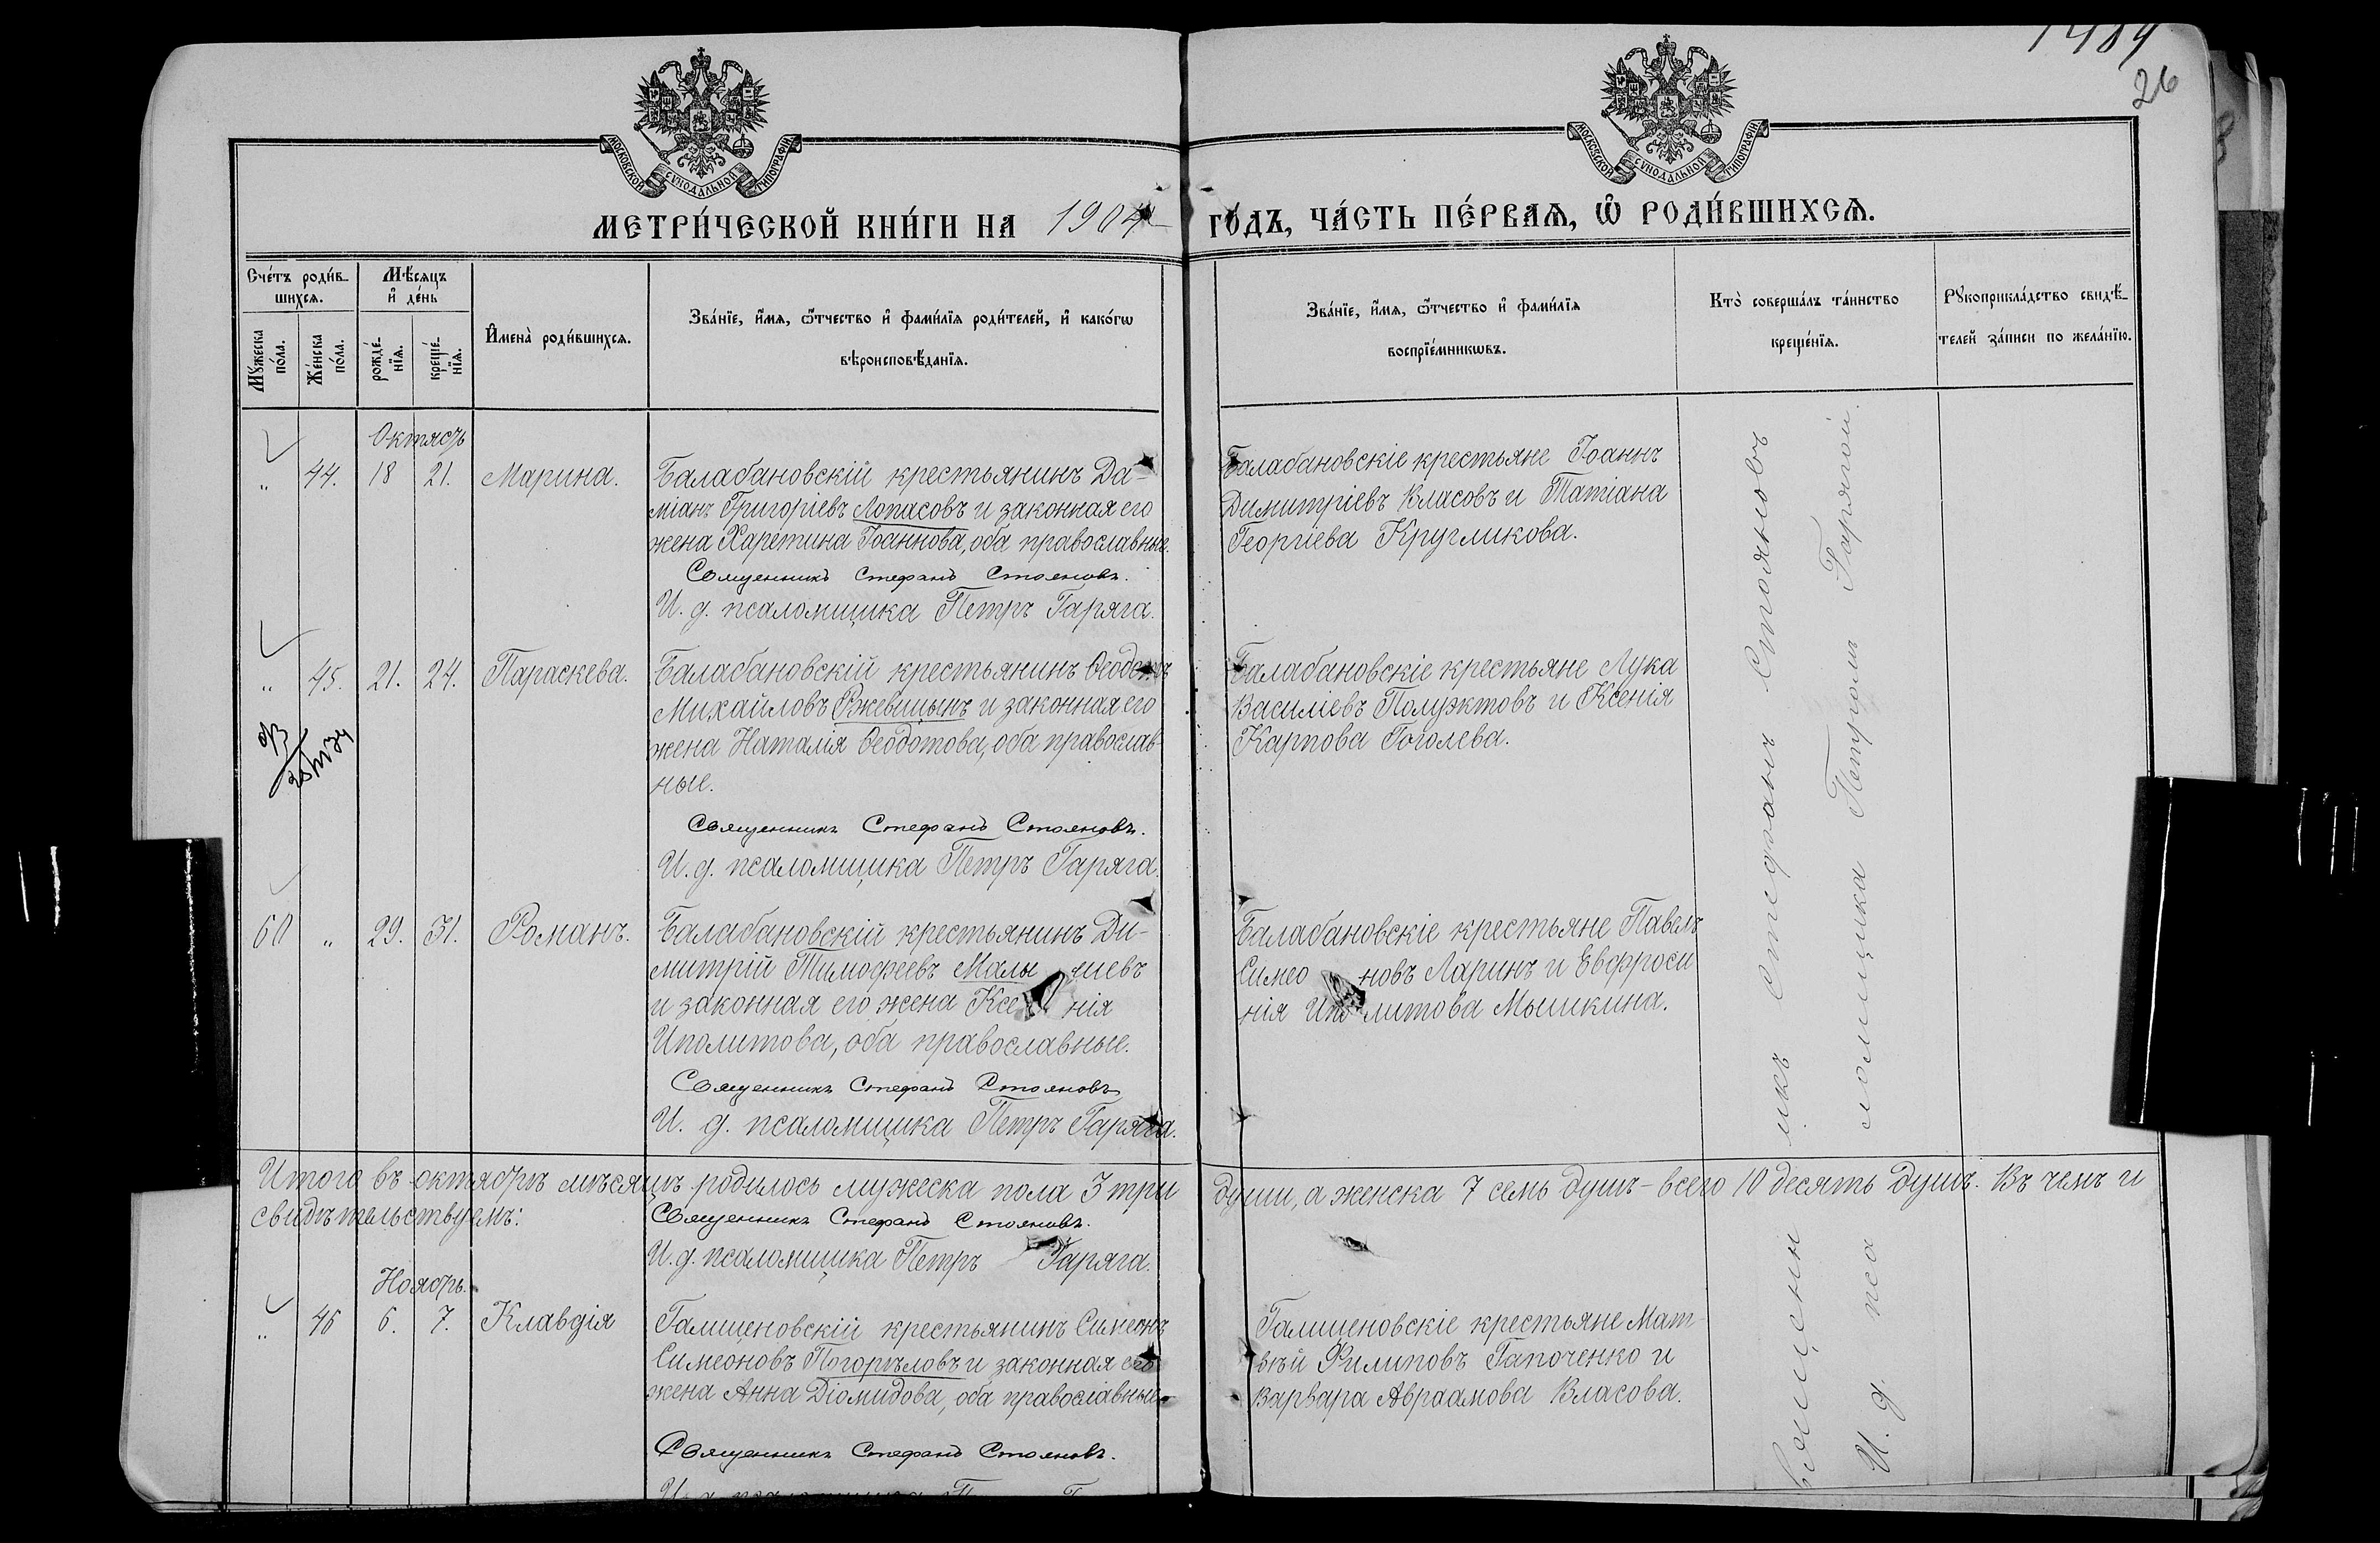 1484
26
МОСКОВСКОЙ СѴНОДАЛЬНОЙ ТИПОГРАФІИ
МОСКОВСКОЙ СѴНОДАЛЬНОЙ ТИПОГРАФІИ
МЕТРИ́ЧЕСКОЙ КНИ́ГИ НА 1904 ГО́ДЪ, ЧА́СТЬ ПЕ́РВАѦ, Ѿ РОДИ́ВШИХСѦ.
Сче́тъ роди́в-
шихся.
Мꙋжеска по́ла.
Же́нска по́ла.
Мѣ́сяцъ
и҆ де́нь
рожде́-
нїя.
креще́-
нїя.
И҆мена̀ роди́вшихся.
Зва́нїе, и҆́мя, ѻ҆́тчество и҆ фами́лїя роди́телей, и҆ како́гѡ
вѣроисповѣ́данїя.
Зва́нїе, и҆́мя, ѻ҆́тчество и҆ фами́лїя
воспрїе́мникѡвъ.
Кто̀ соверша́лъ та́инство
креще́нїя.
Рꙋкоприкла́дство свидѣ́-
телей за́писи по жела́нїю.
Октябрь
„ 44. 18 21. Марина.
Балабановскій крестьянинъ Да-
міанъ Григоріевъ Лопасовъ и законная его
жена Харетина Іоаннова, оба православные.
Священникъ Стефанъ Стояновъ.
И. д. псаломщика Петръ Гаряга.
Балабановскіе крестьяне Іоаннъ
Димитріевъ Власовъ и Татіана
Георгіева Кругликова.
„ 45. 21. 24. Параскева.
Балабановскій крестьянинъ Ѳеодотъ
Михайловъ Ржевицынъ и законная его
жена Наталія Ѳеодотова, оба православ-
ные.
Священникъ Стефанъ Стояновъ.
И. д. псаломщика Петръ Гаряга.
Балабановскіе крестьяне Лука
Василіевъ Полуэктовъ и Ксенія
Карпова Гоголева.
60 „ 29. 31. Романъ.
Балабановскій крестьянинъ Ди-
митрій Тимофеевъ
и законная его жена Ксенія
Иполитова, оба православные.
Священникъ Стефанъ Стояновъ
И. д. псаломщика Петръ Гаряга.
Балабановскіе крестьяне Павелъ
Симеоновъ Ларинъ и Евфроси
нія Иполитова Мышкина.
Итого въ октябрѣ мѣсяцѣ родилось мужеска пола 3 три души, а женска 7 семь душъ - всего 10 десять душъ. Въ чемъ и
свидѣтельствуемъ:
Священникъ Стефанъ Стояновъ.
И. д. псаломщика Петръ Гаряга.
Ноябрь.
„ 46 6. 7. Клавдія
Галиценовскій крестьянинъ Симеонъ
Симеоновъ Погорѣловъ и законная его
жена Анна Діомидова, оба православные.
Священникъ Стефанъ Стояновъ.
Галиценовскіе крестьяне Мат-
вѣй Филиповъ Гапоченко и
Варвара Авраамова Власова.
Священникъ Стефанъ Стояновъ
И. д. псаломщика Петромъ Гарягой.